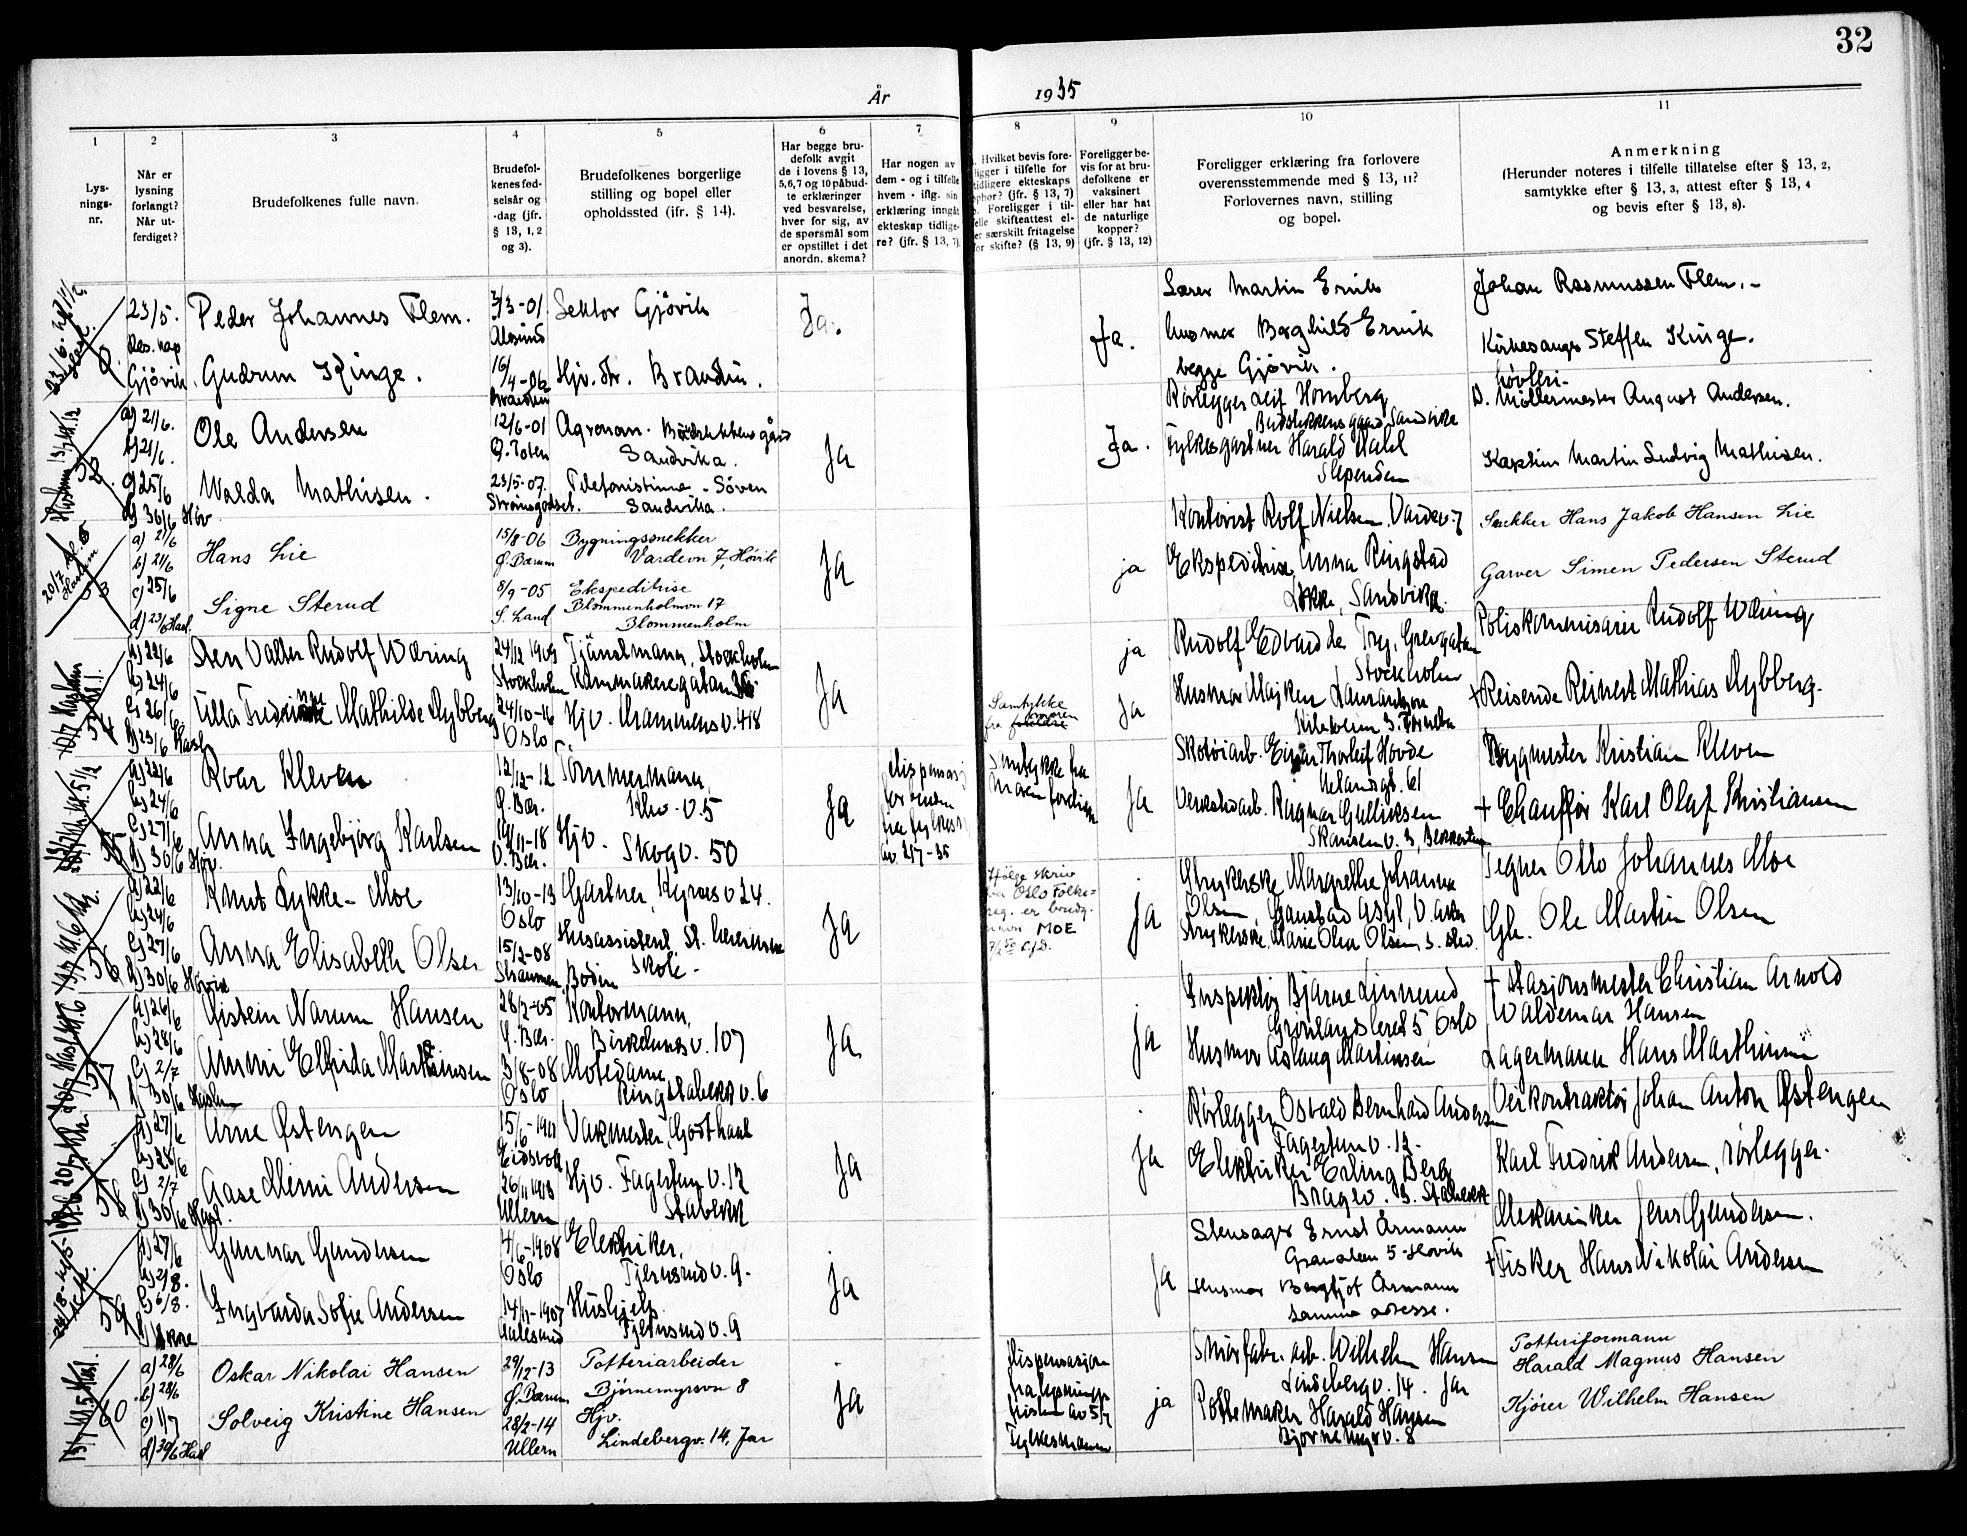 32
År
1935
1
2
3
4
5
6
7
8
9
10
11
Lys-
nings-
nr.
Når er
lysning
forlangt?
Når ut-
ferdiget?
Brudefolkenes fulle navn.
Brudefol-
kenes fød-
selsår og
-dag (jfr.
§ 13, 1, 2
og 3).
Brudefolkenes borgerlige
stilling og bopel eller
opholdssted (jfr. § 14).
Har begge bru-
defolk avgit
de i lovens § 13,
5,6,7 og 10 påbud-
te erklæringer
ved besvarelse,
hver for sig, av
de spørsmål som
er opstillet i det
anordn. skema?
Har nogen av
dem - og i tilfelle
hvem - iflg. sin
erklæring inngåt
ekteskap tidlige-
re? (jfr. § 13, 7)
Hvilket bevis fore-
ligger i tilfelle for
tidligere ekteskaps
ophør? (jfr. § 13, 7)
Foreligger i til-
felle skifteattest el-
er særskilt fritagelse
for skifte? (§ 13, 9)
Foreligger be-
vis for at bru-
defolkene er
vaksinert
eller har hat
de naturlige
kopper?
(jfr. § 13, 12)
Foreligger erklæring fra forlovere
overensstemmende med § 13, 11?
Forlovernes navn, stilling
og bopel.
Anmerkning
(Herunder noteres i tilfelle tillatelse efter § 13, 2,
samtykke efter § 13, 3, attest efter § 13, 4
og bevis efter § 13, 8).
23/5.
Res. kap
Gjövik
Peder Johannes Flem.
Gudrun Kinge.
3/3-01
Alesund
16/4-06
Lektor Gjövik
Hjv. str.
Ja.
Ja.
Lærer Martin Ervik
husmor Borghild Ervik
begge Gjøvik.
Johan Rasmussen Flem.-
Kirkesanger Steffen Kinge.
a) 21/6.
b) 21/6.
c) 25/6
d) 30/6 Höv.
Ole Andersen
Walda Mathisen.
12/6-01
Ø. Toten
23/5-07.
Strömsgodset.
Agronom.
Sandvika.
Telefonistinne - Söven
Sandvika.
Ja
Ja.
Rörlegger Leif Hornberg
Sandvika
Fylkesgartner Harald Dahl
Slependen
Möllermester August Andersen.
Kaptein Martin Ludvig Mathisen.
53
a) 21/6
b) 21/6
c) 25/6
d) 23/6 Hasl.
Hans Lie
Signe Sterud
15/8-06
Ø. Bærum
8/9-05
S. Land
Bygningssnekker
Vardevn 7, Høvik
Ekspeditrise
Blommenholmvn 17
Blommenholm
Ja
ja
Kontorist Rolf Nielsen, Vardev. 7
Ekspeditrise, Anna Ringstad
Løkke, Sandvika.
Snekker Hans Jakob Hansen Lie
Garver Simen Pedersen Sterud
54
a) 22/6
b) 24/6
c) 26/6
d) 23/6 Hasl
Sten Valter Rudolf Wæring
Ulla Mathilde Dybberg
24/12 1909
Stockholm
24/10-16
Oslo
Tjänstmann, Stockholm
Kammakaregatan 36
Hjv. Drammensv. 418
Ja
Samtykke
fra
ja
Ja
Rudolf Edvard de Try, Grevgatan
Stockholm
Husmor Majken
Poliskommisarie Rudolf Wæring
+ Reisende Reinert Mathias Dybberg.
55
a) 22/6
b) 24/6
c) 27/6
d) 30/6 Höv.
Roar Kleven
Anna Ingebjörg Karlsen
12/12-12
Ø. Bær.
19/11-18
V. Bær.
Tömmermann,
Hjv.
Skogv. 50
Ja
dispensasj
fra fylkesm
av 2/7-35
Samtykke fra
Moren foreligg
Ja
Skotöiarb. Einar Thorleif Hovde
Uelandsgt. 61
Verkstedarb. Ragnar Gulliksen
Skansen v. 3, Bekkestua
Byggmester Kristian Kleven
+ Chauffør Karl Olaf Kristiansen
56
a) 22/6
b) 24/6
c) 27/6
d) 30/6 Hövik
Knut Lykke-Moe
Anna Elisabeth Olsen
13/10-13
Oslo
15/2-08
Straumen, Bodin
Gartner, Kyrres v 24.
Husassistent,
skole-
Ja
Ifølge skriv
fra Oslo Folke-
reg. er brudg.
navn MOE
Ja
Strykerske Margrethe Johanne
Olsen, Gaustad Asyl, V. Aker
Strykerske, Marie Olea Olsen, s. sted.
Tegner Otto Johannes Moe
Gb. Ole Martin Olsen
57
a) 26/6
b) 28/6
c) 2/7
d) 30/6 Haslum
Øistein Narum Hansen
Ammi Elfrida Marthinsen
28/2-05
Ø. Bær.
3/8-08
Oslo
Kontormann,
Birkelunds v. 107
Motedame
Ringstabekk v. 6
Ja
Ja
Inspektör Bjarne Ljunerud
Grønlandsleret 5 Oslo
Husmor Aslaug Martinsen
+ Stasjonsmester Christian Arnold
Waldemar Hansen
Lagermann Hans Marthinsen
58
a) 27/6
b) 28/6
c) 2/7
d) 30/6 Hasl.
Arne Østengen
Aase Mimi Andersen
15/6-1911
Eidsvoll
26/11 1913
Ullern
Vakmester, Godthaab
Hjv. Fagertun v. 12
Stabekk
Ja
Ja
Rörlegger Osvald Bernhard Andersen
Fagertun v. 12.
Elektriker Erling Berg
Bragev. 3. Stabekk
Veikontraktör Johan Anton Østengen
Karl Fredrik Andersen, rörlegger.
59
a) 27/6
b) 2/8.
c) 6/8.
Gunnar Gundersen
Ingvarda Sofie Andersen
4/6-1908
Oslo
14/11-1907
Aalesund
Elektriker,
Tjernsrud v. 9.
Hushjelp
Tjernsrud v. 9
Ja
Ja
Stensager Ernst Årmann
Granstien 5 Hövik
Husmor Bergljot Årmann
samme adresse.
Mekaniker Jens Gundersen.
+ Fisker Hans Nikolai Andersen
60
a) 28/6
b) 28/6
c) 1/7
d) 30/6 Hasl
Oskar Nikolai Hansen
Solveig Kristine Hansen
29/12-13
Ø. Bærum
28/2-14
Ullern
Potteriarbeider
Bjørnemyrsvn 8
Hjv.
Lindebergv. 14, Jar
Ja
Dispensasjon
fra lysnings
fristen av 5/7
Fylkesmannen
ja
Smörfabr. arb. Wilhelm Hansen
Lindebergv. 14. Jar
Pottemaker Harald Hansen
Bjørnemyr v. 8
Potteriformann
Harald Magnus Hansen
Kjører Wilhelm Hansen